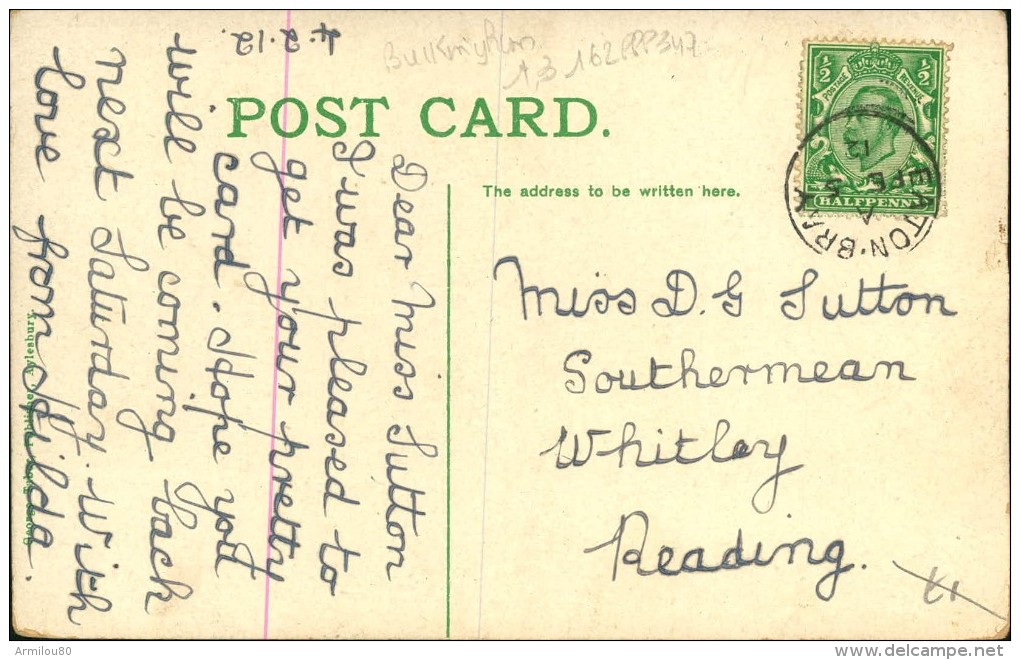 4.2.12.
POST CARD.
The address to be written here.
½ ½
POSTAGE REVENUE
HALFPENNY
EATON·BRAY
A
5 FE
12
Dear Miss Sutton
I was pleased to
get your pretty
card. Hope you
will be coming back
next Saturday. With
love from Hilda.
Miss D. G Sutton
Southermean
Whitley
Reading.
Aylesbury.
Armilou80
delcampe.net